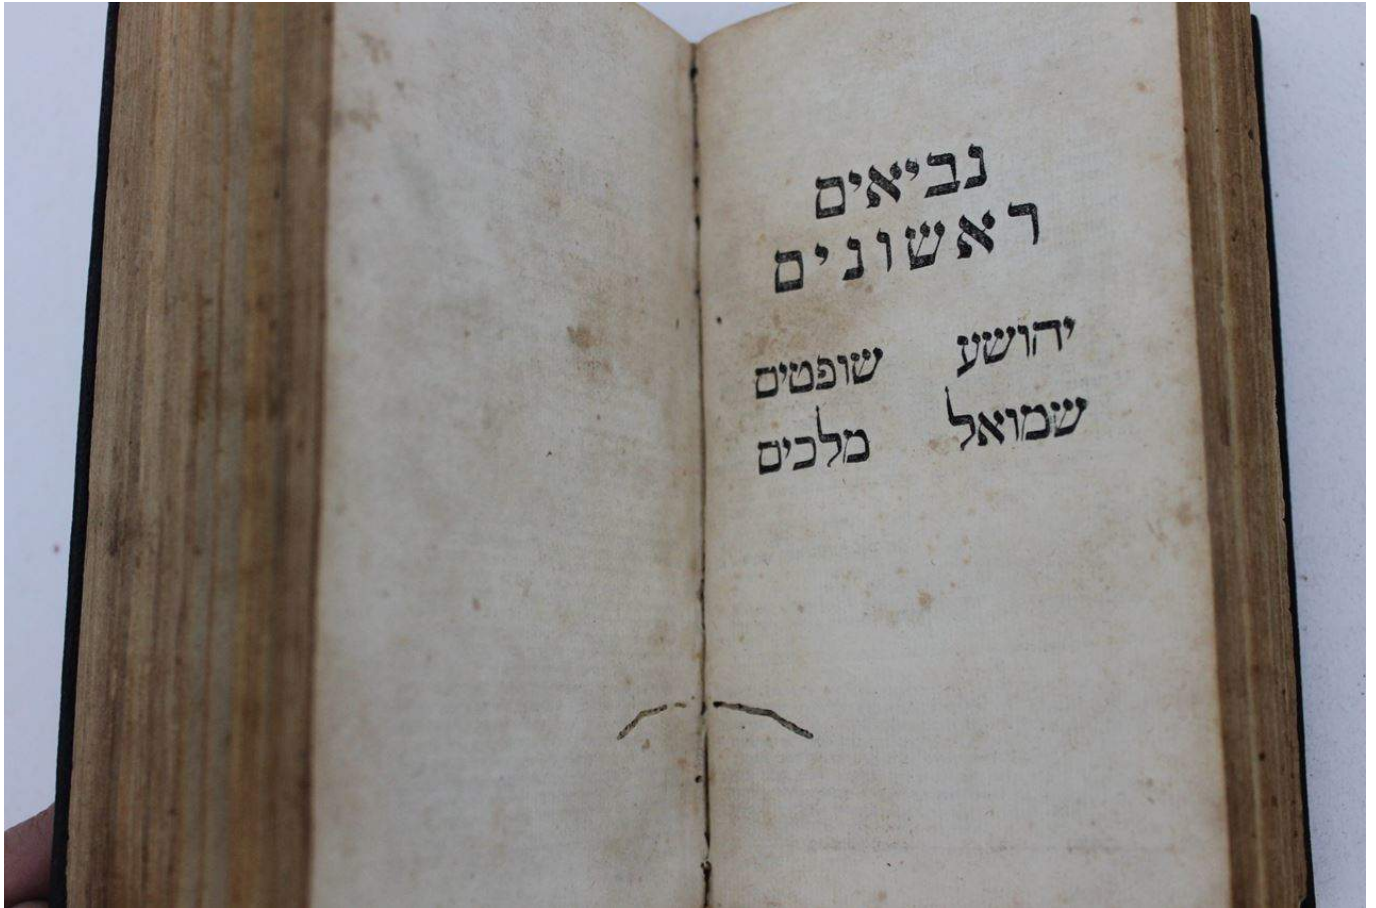 נביאים
ראשונים
יהושע שופטים
שמואל מלכים